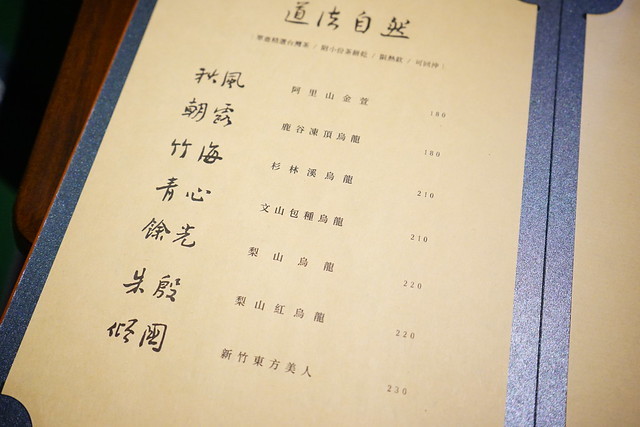 道法自然
〔單壺精選台灣茶 / 附小份茶餅乾 / 限熱飲 / 可回沖〕
秋風 阿里山金萱 180
朝露 鹿谷凍頂烏龍 180
竹海 杉林溪烏龍 210
青心 文山包種烏龍 210
餘光 梨山烏龍 220
朱殷 梨山紅烏龍 220
傾國 新竹東方美人 230